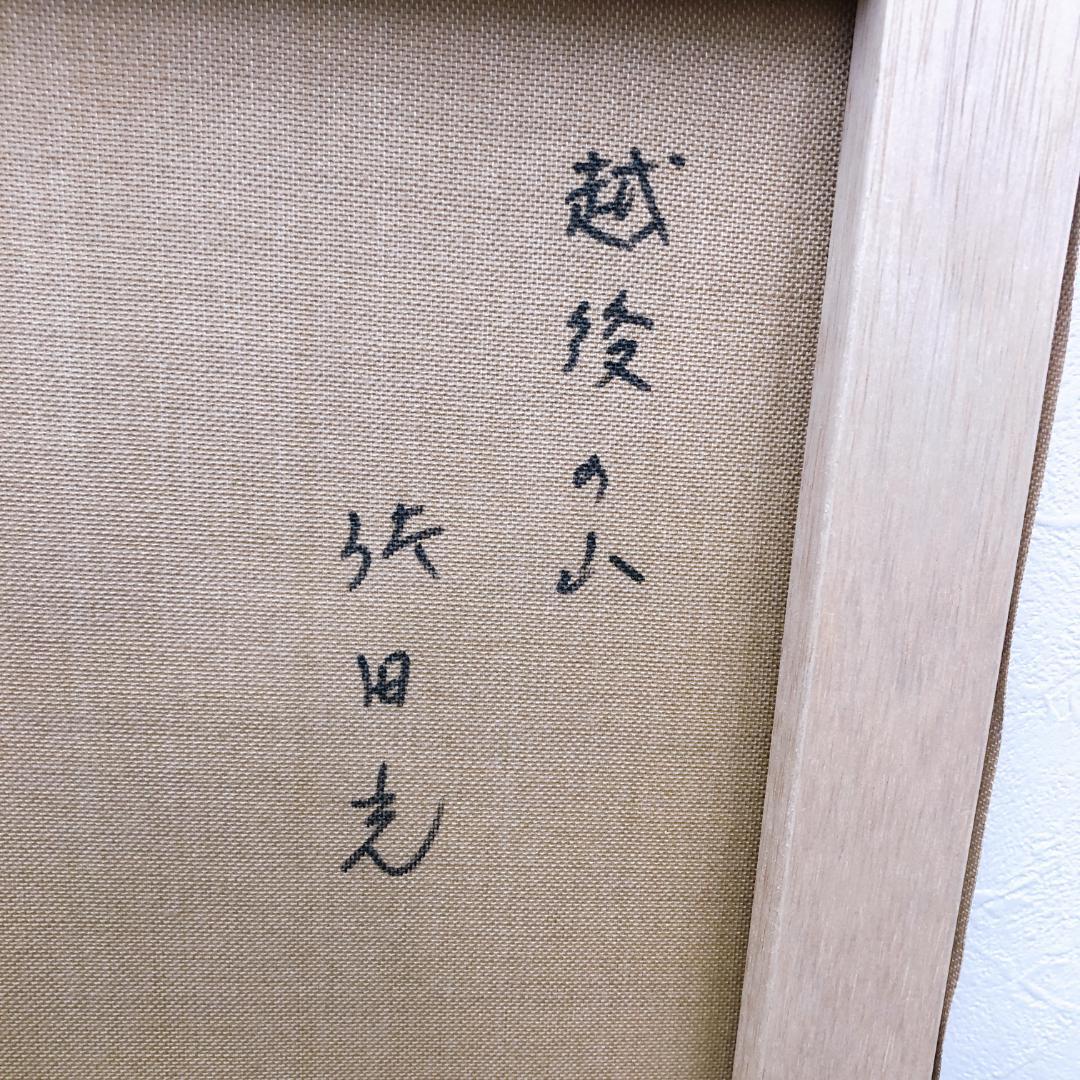 越後の山
田光